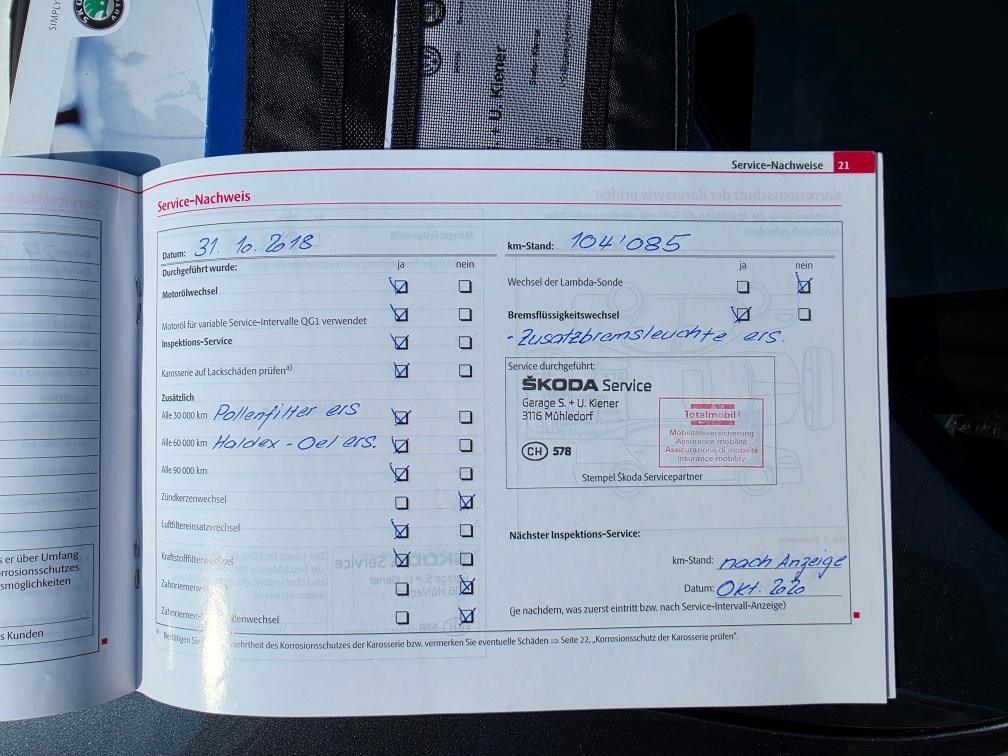 SIMPLY
ŠKO
AUTO
+ U. Kiener
Service-Nachweise 21
Service-Nachweis
Datum: 31. 10. 2018
Durchgeführt wurde: ja nein
Motorölwechsel
Motoröl für variable Service-Intervalle QG1 verwendet
Inspektions-Service
Karosserie auf Lackschäden prüfen a)
Zusätzlich
Alle 30 000 km Pollenfilter ers
Alle 60 000 km Haldex - Oel ers.
Alle 90 000 km
Zündkerzenwechsel
Luftfiltereinsatzwechsel
Kraftstofffilterwechsel
Zahnriemen
Zahnriemen- wechsel
km-Stand: 104'085
ja nein
Wechsel der Lambda-Sonde
Bremsflüssigkeitswechsel
- Zusatzbremsleuchte ers.
Service durchgeführt:
ŠKODA Service
Garage S. + U. Kiener
3116 Mühledorf
CH 578
Totalmobil!
Mobilitätsversicherung
Assurance mobilité
Assicurazione di mobilità
Insurance mobility
Stempel Škoda Servicepartner
Nächster Inspektions-Service:
km-Stand: nach Anzeige
Datum: Okt. 2020
(je nachdem, was zuerst eintritt bzw. nach Service-Intervall-Anzeige)
a) Bestätigen Sie sehrtheit des Korrosionsschutzes der Karosserie bzw. vermerken Sie eventuelle Schäden ⇒ Seite 22, „Korrosionsschutz der Karosserie prüfen".
s er über Umfang
rrosionsschutzes
smöglichkeiten
s Kunden